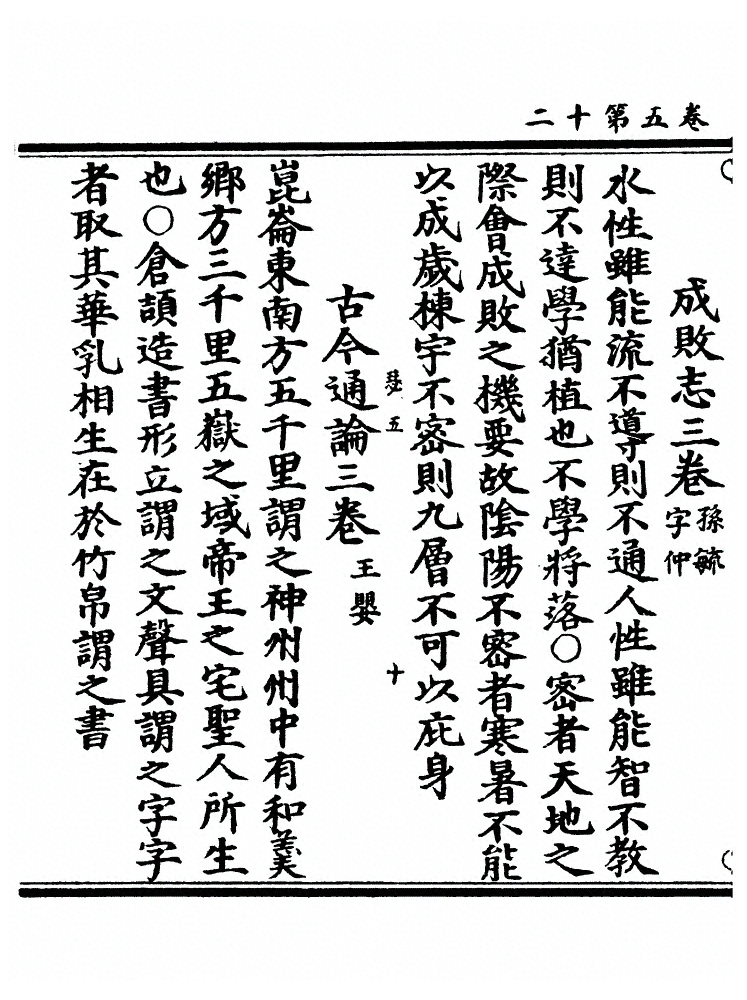 卷五第十二
成敗志三卷 孫毓字仲
水性雖能流不導則不通人性雖能智不教
則不達學猶植也不學將落○密者天地之
際會成敗之機要故陰陽不密者寒暑不能
以成歲棟宇不密則九層不可以庇身
五 十
古今通論三卷 王嬰
崑崙東南方五千里謂之神州州中有和羹
鄉方三千里五嶽之域帝王之宅聖人所生
也○倉頡造書形立謂之文聲具謂之字字
者取其華乳相生在於竹帛謂之書